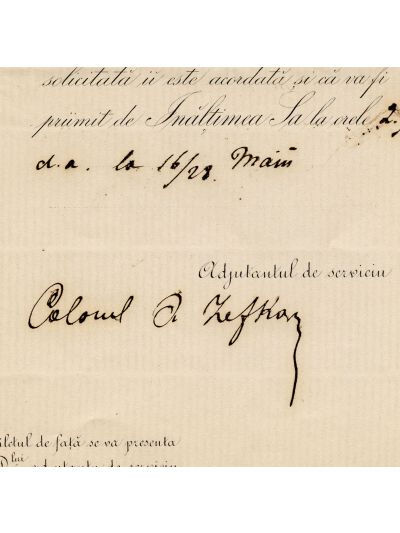 solicitată ii este acordată și că va fi
priimit de Înălțimea Sa la orele 2
d.a. la 16/28 Maiu
Adjutantul de serviciu
Colonel
lletul de față se va presenta
Dlui adjutantu de serviciu